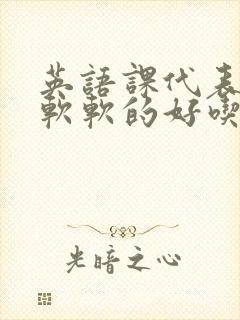 英語課代表
軟軟的好喫
光暗之心